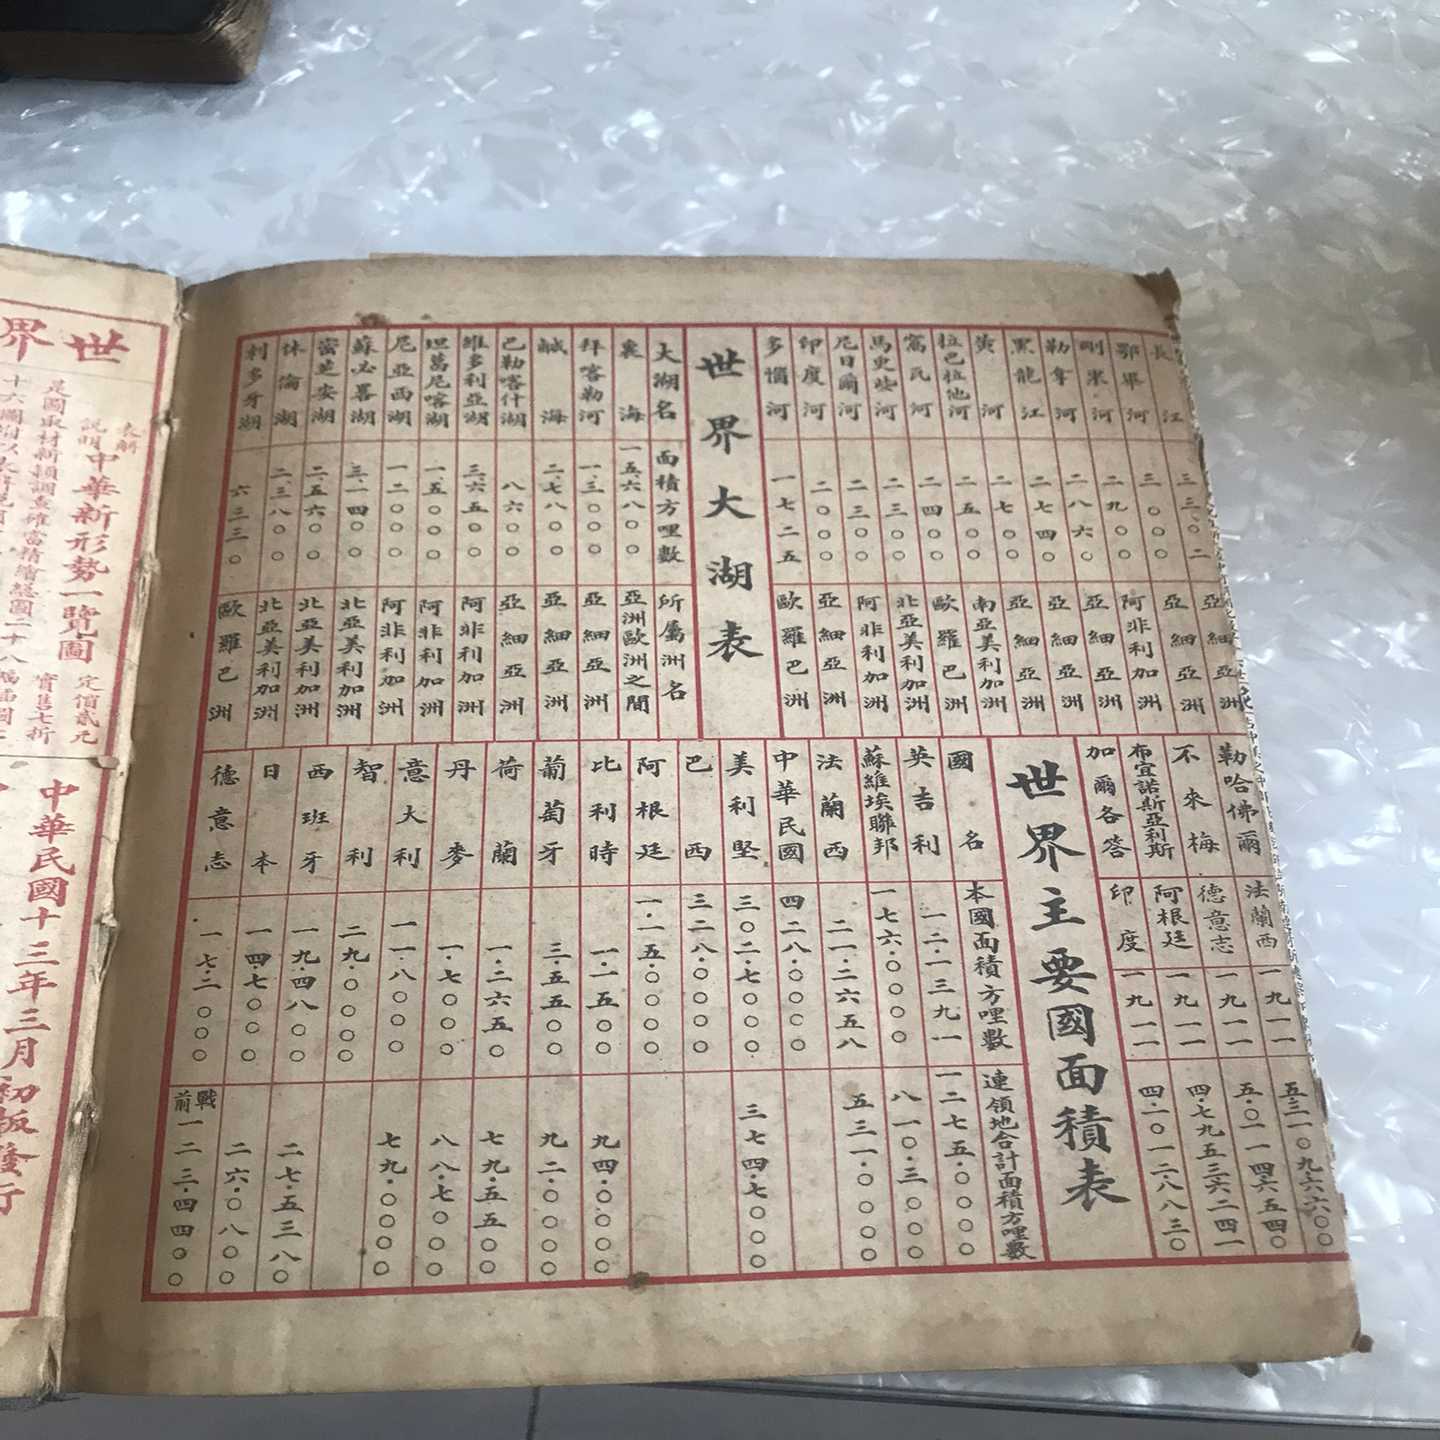 長江 三三〇二 亞細亞洲
鄂畢河 三〇〇〇 亞細亞洲
剛果河 二九〇〇 阿非利加洲
勒拿河 二八六〇 亞細亞洲
黑龍江 二七四〇 亞細亞洲
黃河 二七〇〇 亞細亞洲
拉巴拉他河 二五〇〇 南亞美利加洲
窩瓦河 二四〇〇 歐羅巴洲
馬更些河 二三〇〇 北亞美利加洲
尼日爾河 二三〇〇 阿非利加洲
印度河 二〇〇〇 亞細亞洲
多惱河 一七二五 歐羅巴洲
世界大湖表
大湖名 面積方哩數 所屬洲名
裏海 一五.六八〇〇 亞洲歐洲之間
拜喀勒河 一.三〇〇〇 亞細亞洲
鹹海 二.七八〇〇 亞細亞洲
巴勒喀什湖 八六〇〇 亞細亞洲
維多利亞湖 三.六五〇〇 阿非利加洲
坦葛尼喀湖 一.五〇〇〇 阿非利加洲
尼亞西湖 一.二〇〇〇 阿非利加洲
蘇必畧湖 三.一四〇〇 北亞美利加洲
密芝安湖 二.五六〇〇 北亞美利加洲
休倫湖 二.三八〇〇 北亞美利加洲
剌多牙湖 六三三〇 歐羅巴洲
勒哈佛爾 法蘭西 一九一一 五.三一〇九.六六〇〇
不來梅 德意志 一九一一 五.〇一一四.六五四〇
布宜諾斯亞利斯 阿根廷 一九一一 四.七九五三.六二四一
加爾各答 印度 一九一一 四.二〇一二.八八三〇
世界主要國面積表
國名 本國面積方哩數 連領地合計面積方哩數
英吉利 一二.一三九一 一二七五.〇〇〇〇
蘇維埃聯邦 一七六.〇〇〇〇 八一〇.三〇〇〇
法蘭西 二一.二六五八 五三一.〇〇〇〇
中華民國 四二八.〇〇〇〇
美利堅 三〇二.七〇〇〇 三七四.七〇〇〇
巴西 三二八.〇〇〇〇
阿根廷 一一五.〇〇〇〇
比利時 一.一五〇〇 九四.〇〇〇〇
葡萄牙 三.五五〇〇 九二.〇〇〇〇
荷蘭 一.二六五〇 七九.五五〇〇
丹麥 一.七〇〇〇 八八.七〇〇〇
意大利 一一.八〇〇〇 七九.〇〇〇〇
智利 二九.〇〇〇〇
西班牙 一九.四八〇〇 二七.五三八〇
日本 一四.七〇〇〇 二六.〇八〇〇
德意志 一七.二〇〇〇 戰前一二三.四四〇〇
世界
表解
說明
中華新形勢一覽圖
定價貳元
實售七折
是圖取材新穎調查確富精繪總圖二十八幅
中華民國十三年三月初板發行